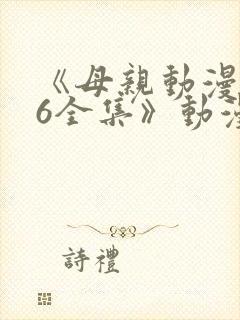 《母親動漫
6全集》動漫
詩禮